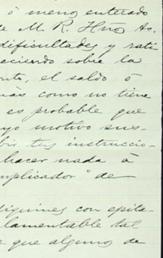 ó menos enterado
de M. R. Hnos
dificultades y
aciendo sobre la
el saldo ó
más como no tiene
es probable que
yo motivo sus-
instruccio-
hacer nada á
mplicador" de
con epita-
lamentable tal
r que alguno de